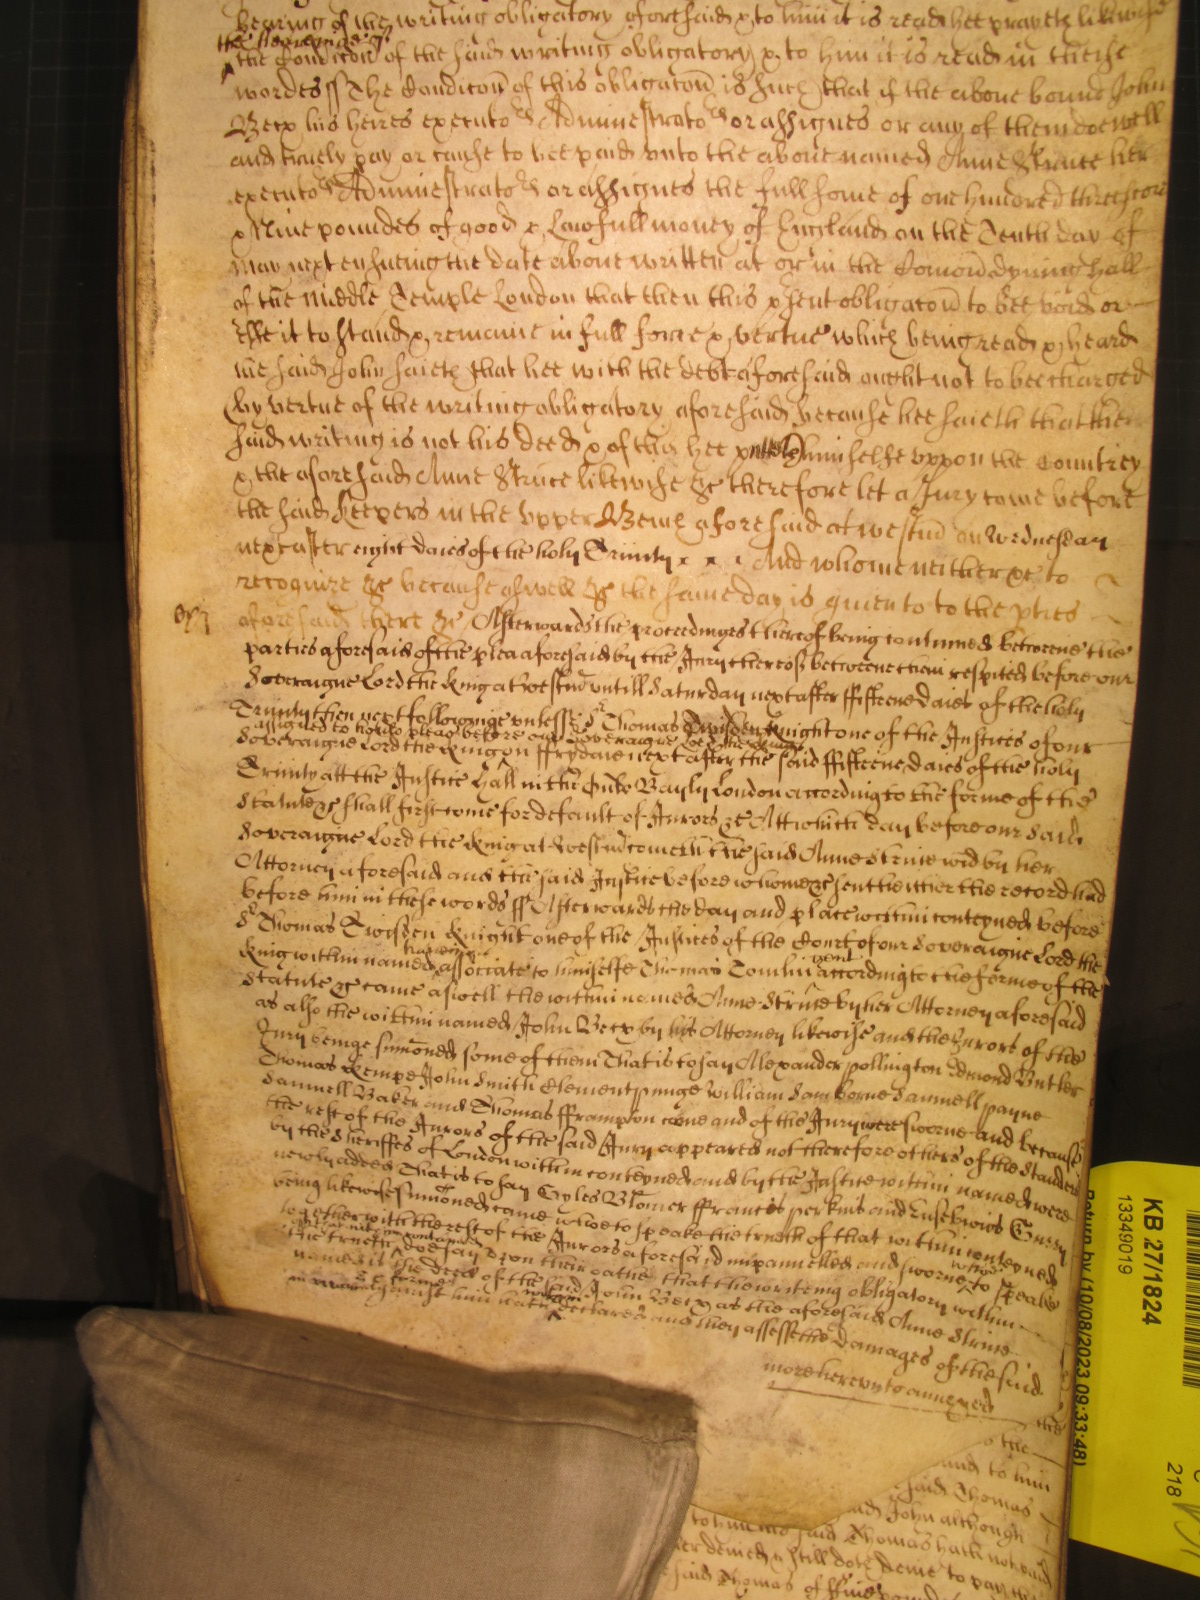 hearing of the writing obligatory aforesaid & to him it is read hee prayeth likewise
the heareinge of
the Condicon of the said writing obligatory & to him it is read in theise
wordes ss The Condicon of this obligacon is such that if the above boune John
Beex his heires executors Administrators or assignes or any of them doe well
and truely pay or cause to bee paid unto the above named Anne Strine her
executors Administrators or assignes the full some of one hundred threescore
& Nine poundes of good & Lawfull money of England on the Tenth day of
May next ensueing the date above written at or in the Comon dyning hall
of the Middle Temple London that then this psent obligacon to bee void or
else it to stand & remaine in full force & vertue which being read & heard
the said John saieth that hee with the debt aforesaid ought not to bee charged
by vertue of the writing obligatory aforesaid because hee saieth that the
said writing is not his deed & of this hee putteth himselfe uppon the Countrey
& the aforesaid Anne Strine likewise &c therefore let a Jury come before
the said keepers in the upper Bench aforesaid at Westm on Wednesday
next after eight daies of the holy Trinity And whome neither &c to
recognize &c because aswell &c the same day is given to to the pties
aforesaid there &c Afterwards the proceedinges thereof being continued betweene the
parties aforesaid of the plea aforesaid by the Jury thereof betweene them respited before our
Soveraigne Lord the King at Westm untill Saturday next after ffifteene daies of the holy
Trinity then next followinge unlesse Sr Thomas Twisden knight one of the Justices of our
assigned to hould pleas before our Soveraigne Lord the King
Soveraigne Lord the King on ffryday next after the said ffifteene daies of the holy
Trinity att the Justice Hall in the Ould Bayly London according to the forme of the
Statute &c shall first come for default of Jurors &c Att which day before our said
Soveraigne Lord the King at Westm cometh the said Anne Strine by her
Attorney aforesaid and the said Justice before whome &c sent hither the record had
before him in these words ss Afterwards the day and place within conteyned before
Sr Thomas Twisden knight one of the Justices of the Court of our Soveraigne Lord the
King within named associate to himselfe Thomas Tomlin gent according to the forme of the
Statute &c came aswell the within named Anne Strine by her Attorney aforesaid
as also the within named John Beex by his Attorney likewise and the Jurors of the
Jury beinge sumoned some of them That is to say Alexander Pollington Edmond Butler
Thomas Kempe John Smith Clement Punge William Samborne Samuell Payne
Samuell Baker and Thomas fframpton come and of the Jury were sworne and because
the rest of the Jurors of the said Jury appeared not therefore others of the Standers
by the Sheriffes of London within conteyned and by the Justice within named were
newly added That is to say Gyles Blomer ffrancis Perkins and Eusebius
being likewise sumoned came whoe to speake the truth of that within conteyned
together with the rest of the Jurors aforesaid impannelled and sworne to speake
the trueth doe say upon their oathe that the writeing obligatory within
named is the deed of the said John Beex as the aforesaid Anne Strine
against him hath declared and they assesse the damages of the said
more hereunto annexed
the
to the
and to him
said Thomas
said John although
said Thomas hath not paid
denied & still doth denie to pay
said Thomas of
KB 27/1824
13349019
Return by (10/08/2023 09:33:48)
218